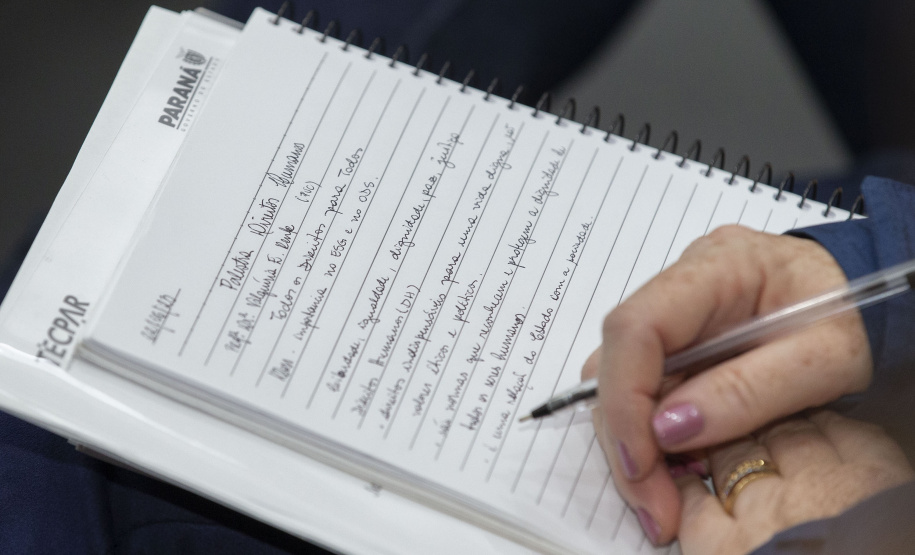 PARANÁ
GOVERNO DO ESTADO
TECPAR
Palestra Direitos Humanos
Profª Drª E. (PUC)
Todos os Direitos para Todos
importância no ESG e no ODS.
igualdade, dignidade, paz, justiça
Direitos Humanos (DH)
. direitos indispensáveis para uma vida digna,
valores éticos e políticos.
. são normas que reconhecem e protegem a dignidade de
todos os seres humanos.
. é uma relação do Estado com a sociedade.